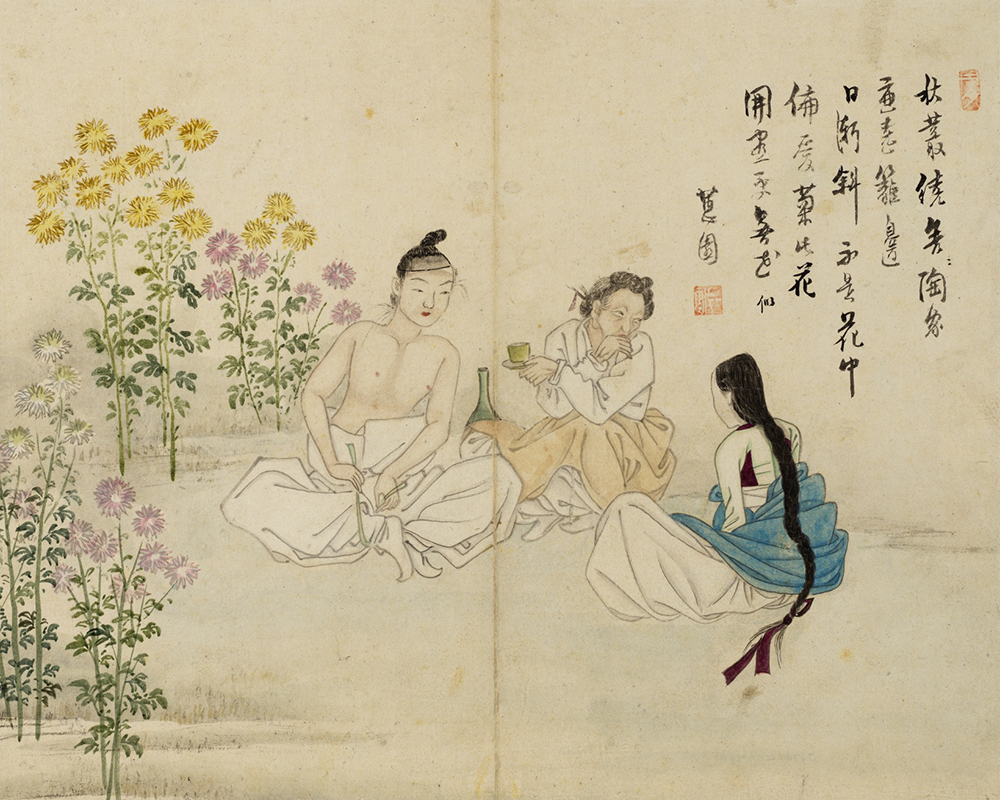 秋叢繞舍陶家
遍遶籬邊
日漸斜不是花中
偏愛菊此花
開盡更無花似
蕙園